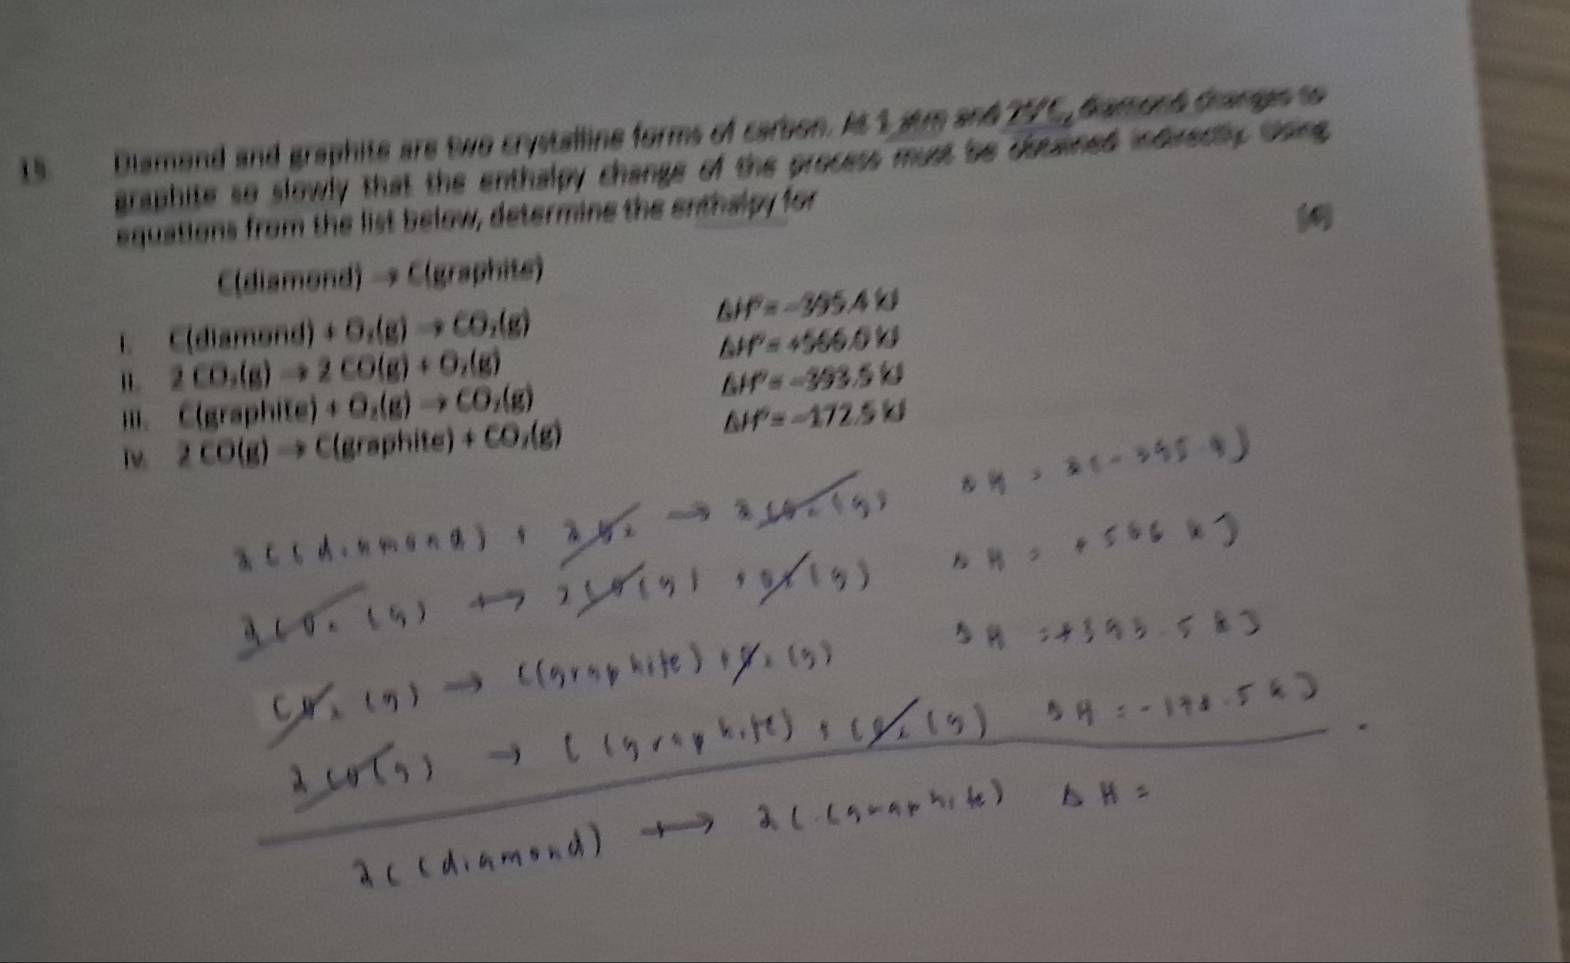 19. Diamond and graphite are two crystalline forms of carbon. At 1 atm and 25°C, diamond changes to
graphite so slowly that the enthalpy change of the process must be obtained indirectly. Using
equations from the list below, determine the enthalpy for
[4]
C(diamond) → C(graphite)
i. C(diamond) + O₂(g) → CO₂(g) ΔH° = -395.4 kJ
ii. 2 CO₂(g) → 2 CO(g) + O₂(g) ΔH° = +566.0 kJ
iii. C(graphite) + O₂(g) → CO₂(g) ΔH° = -393.5 kJ
iv. 2 CO(g) → C(graphite) + CO₂(g) ΔH° = -172.5 kJ
2C(diamond) + 2O₂ → 2CO₂(g) ΔH = 2(-395.4)
2CO₂(g) → 2CO(g) + O₂(g) ΔH = +566 kJ
CO₂(g) → C(graphite) + O₂(g) ΔH = +393.5 kJ
2CO(g) → C(graphite) + CO₂(g) ΔH = .5 kJ
2C(diamond) → 2C(graphite) ΔH =